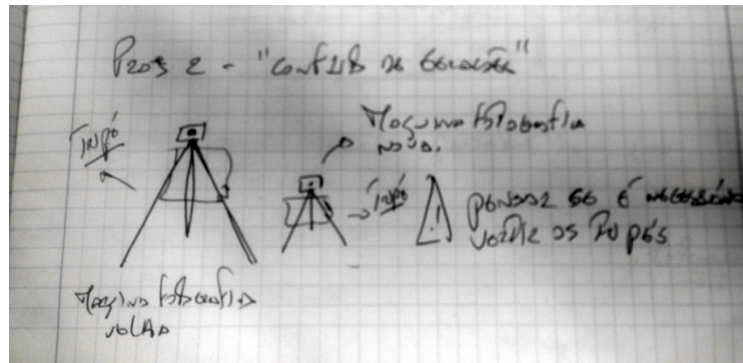 Proj 2 - "Conflito de gerações"
Tripé
Maquina fotografica
nova.
Tripé
pensar se é necessário
variar os tripés
Maquina fotografica
velha